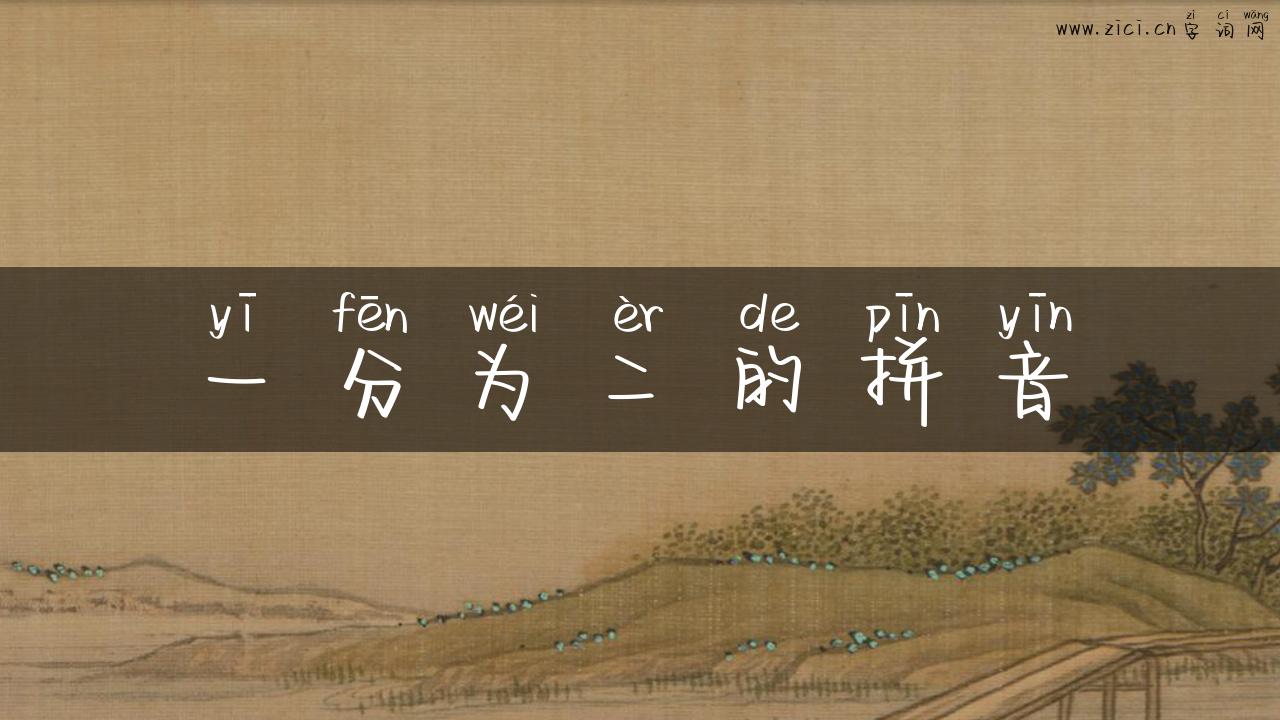 zì cí wǎng
www.zici.cn 字 词 网
yī fēn wéi èr de pīn yīn
一 分 为 二 的 拼 音